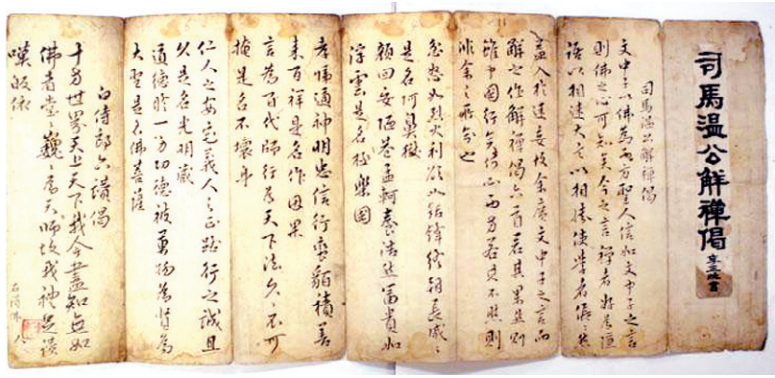 司馬温公解禪偈
司馬温公解禪偈
文中子以佛為西方聖人信如文中子之言
則佛之心可知矣今之言禪者好為隱
語以相迷大言以相勝使學者倀々然
益入於迷妄故余廣文中子之言而
解之作解禪偈六首若其果然則
雖中國行矣何必西方若其不然則
非余之所知也
忿怒如烈火利欲如銛鋒終朝長戚々
是名阿鼻獄
顏回安陋巷孟軻養浩然富貴如
浮雲是名極樂國
孝悌通神明忠信行蠻貊積善
来百祥是名作因果
言為百代師行為天下法久々不可
掩是名不壞身
仁人之安宅義人之正路行之誠且
久是名光明藏
道德脩一身功德被萬物為賢為
大聖是名佛菩薩
白侍郎六讚偈
十方世界天上天下我今盡知無如
佛者堂々巍々為天師故我禮足讚
嘆皈依